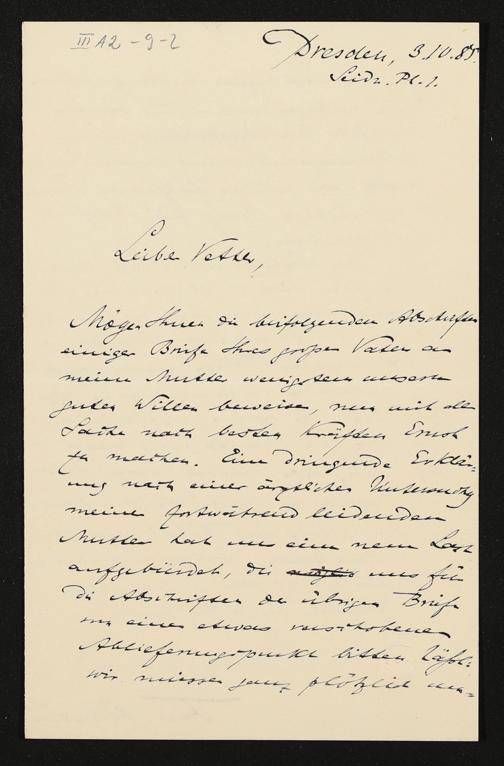 III A2 - 9 - 2
Dresden, 3.IV.85.
Seidn. Pl. 1.
Lieber Vetter,
Mögen Ihnen die beifolgenden Abschriften
einiger Briefe Ihres großen Vaters an
meine Mutter wenigstens unseren
guten Willen beweisen, nun mit der
Sache nach besten Kräften Ernst
zu machen. Eine dringende Erklär-
ung nach einer ärztlichen Untersuchung
meiner fortwährend leidenden
Mutter hat uns eine neue Last
aufgebürdet, die uns für
die Abschriften der übrigen Briefe
um einen etwas verschobenen
Ablieferungspunkt bitten läßt:
wir müssen ganz plötzlich um-